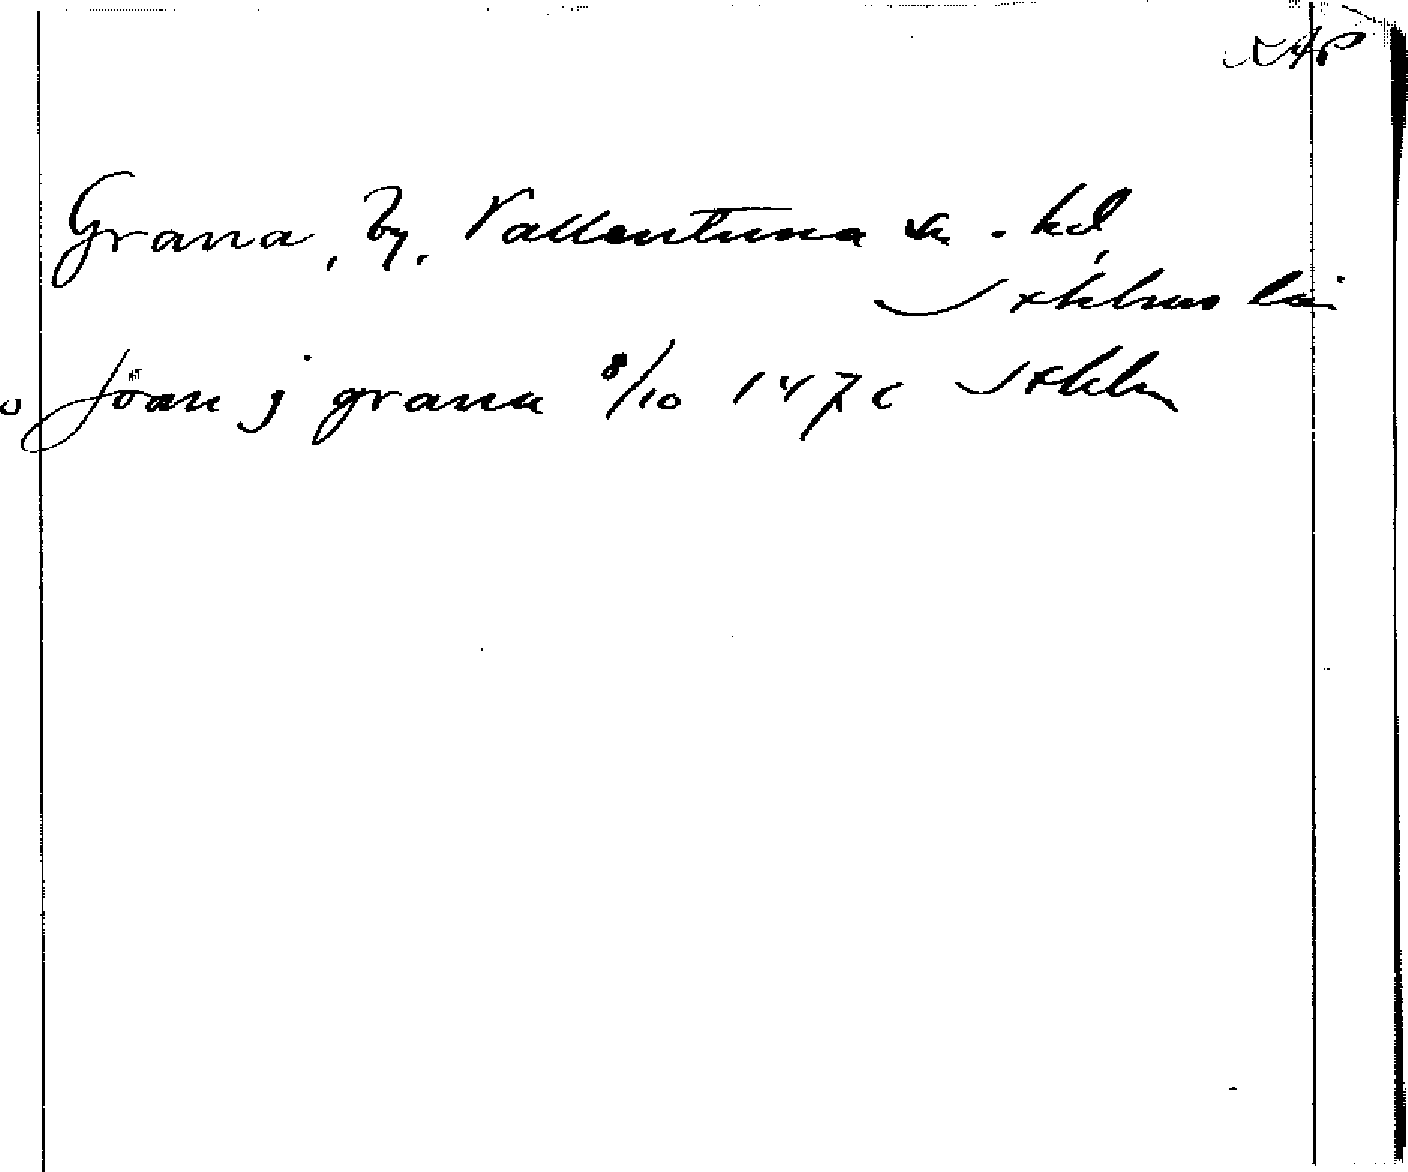 Grana, by, Vallentuna sn. hd,
Sthlms län
Jöan j grana 8/10 147c Sthlm